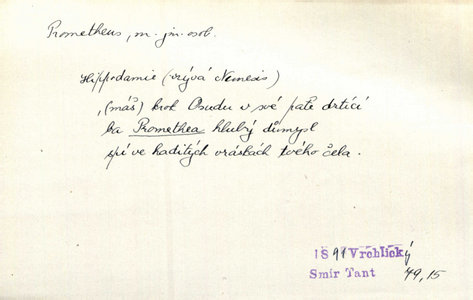 Prometheus, m. jm. osob.
Hippodamie (vzývá Nemesis)
„(máš) krok Osudu v své patě drtící
ba Promethea hlubý důmysl
spí ve haditých vráskách tvého čela.
1891 Vrchlický
Smír Tant 49,15